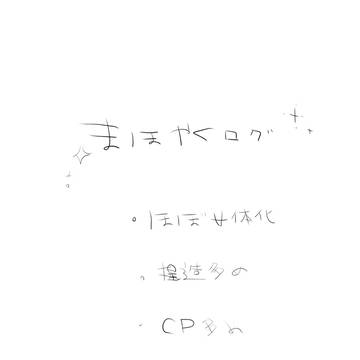 まほやくログ
・ほぼ女体化
・捏造多め
・CP多め